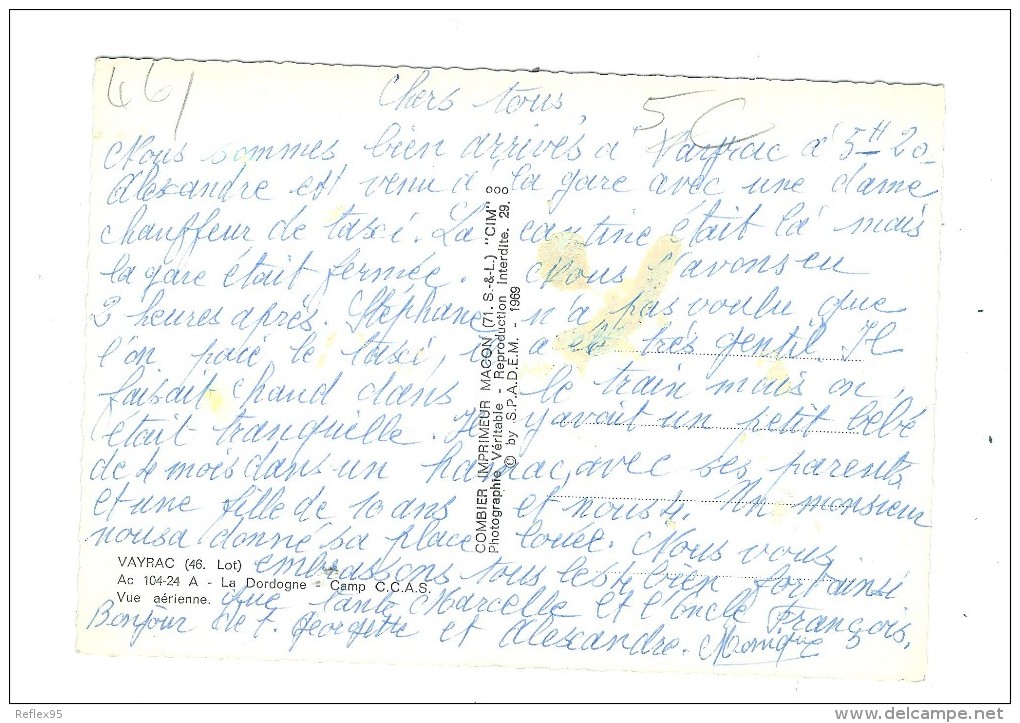 461
5C
Chers tous,
Nous sommes bien arrivés à Vayrac à 5H20.
Alexandre est venu à la gare avec une dame
chauffeur de taxi. La cantine était là mais
la gare était fermée. Nous l'avons eu
2 heures après. Stéphane n'a pas voulu que
l'on paie le taxi, il a été très gentil. Il
faisait chaud dans le train mais on
était tranquille. Il y avait un petit bébé
de 4 mois dans un hamac, avec ses parents
et une fille de 10 ans et nous 4. Un monsieur
nous a donné sa place louée. Nous vous
embrassons tous les 4 bien fort ainsi
que tante Marcelle et l'oncle François.
Bonjour de t. Georgette et Alexandre. Monique
COMBIER IMPRIMEUR MACON (71. S.-&-L.) "CIM"
Photographie Véritable - Reproduction Interdite. 29.
© by S.P.A.D.E.M. - 1969
VAYRAC (46. Lot)
Ac 104-24 A - La Dordogne - Camp C.C.A.S.
Vue aérienne.
Reflex95
www.delcampe.net